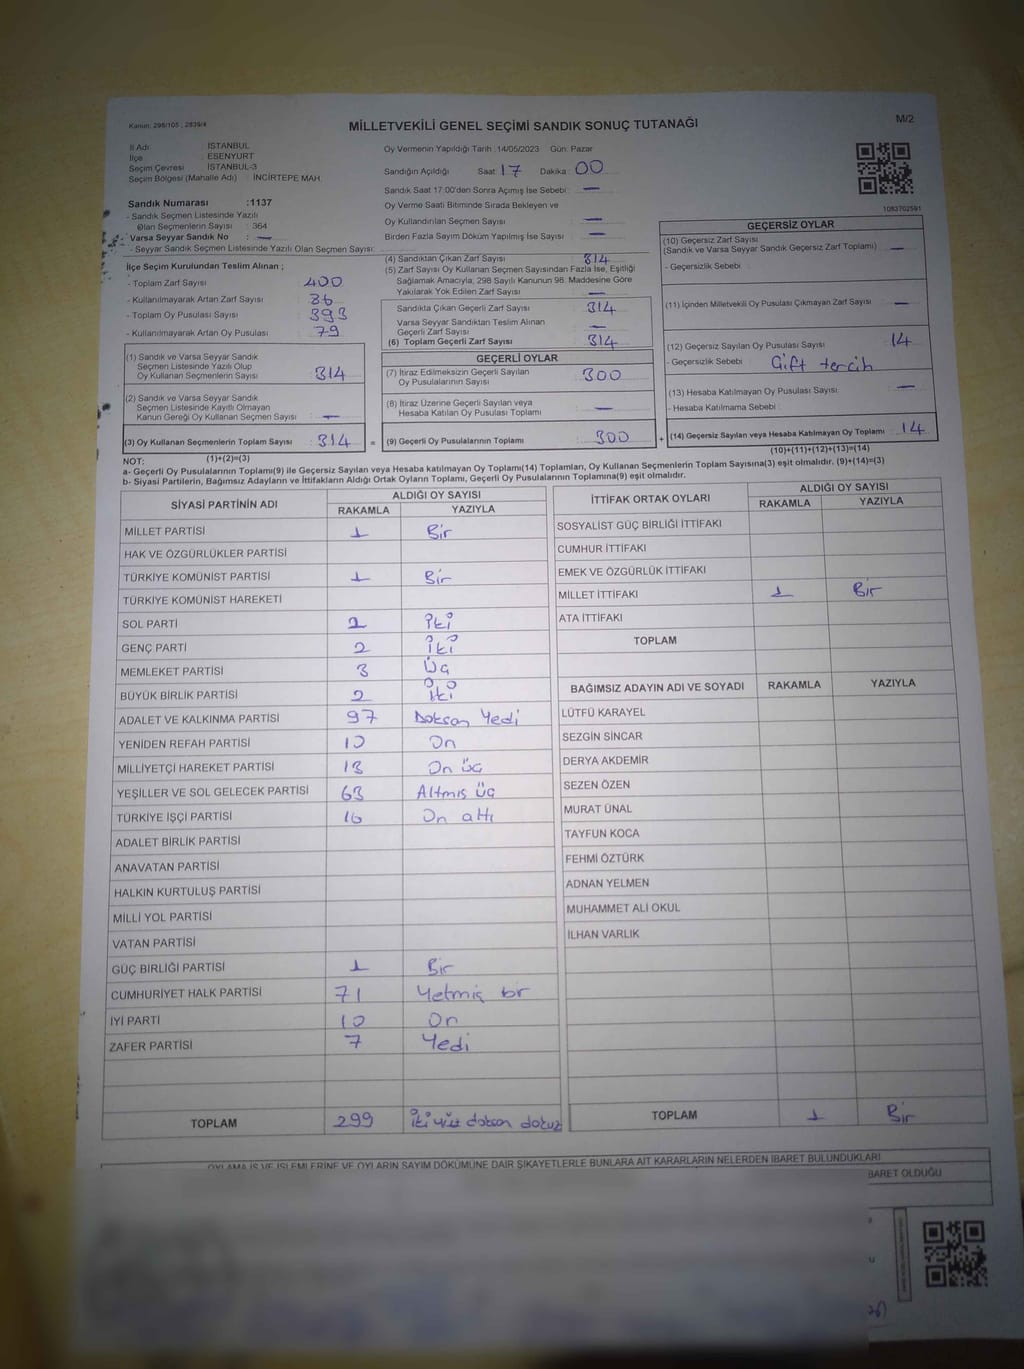 Kanun: 298/105 ; 2839/4
MİLLETVEKİLİ GENEL SEÇİMİ SANDIK SONUÇ TUTANAĞI
M/2
İl Adı : İSTANBUL
İlçe : ESENYURT
Seçim Çevresi : İSTANBUL-3
Seçim Bölgesi (Mahalle Adı) : İNCİRTEPE MAH
Oy Vermenin Yapıldığı Tarih : 14/05/2023 Gün: Pazar
Sandığın Açıldığı Saat: 17 Dakika: 00
Sandık Saat 17:00'den Sonra Açımış İse Sebebi : —
Oy Verme Saati Bitiminde Sırada Bekleyen ve
Oy Kullandırılan Seçmen Sayısı : —
Birden Fazla Sayım Döküm Yapılmış İse Sayısı : —
1083702591
Sandık Numarası :1137
- Sandık Seçmen Listesinde Yazılı
Olan Seçmenlerin Sayısı : 364
- Varsa Seyyar Sandık No : —
- Seyyar Sandık Seçmen Listesinde Yazılı Olan Seçmen Sayısı:
İlçe Seçim Kurulundan Teslim Alınan ;
- Toplam Zarf Sayısı : 400
- Kullanılmayarak Artan Zarf Sayısı : 86
- Toplam Oy Pusulası Sayısı : 393
- Kullanılmayarak Artan Oy Pusulası : 79
(1) Sandık ve Varsa Seyyar Sandık
Seçmen Listesinde Yazılı Olup
Oy Kullanan Seçmenlerin Sayısı : 314
(2) Sandık ve Varsa Seyyar Sandık
Seçmen Listesinde Kayıtlı Olmayan
Kanun Gereği Oy Kullanan Seçmen Sayısı : —
(3) Oy Kullanan Seçmenlerin Toplam Sayısı : 314 =
(1)+(2)=(3)
(4) Sandıktan Çıkan Zarf Sayısı : 314
(5) Zarf Sayısı Oy Kullanan Seçmen Sayısından Fazla İse, Eşitliği
Sağlamak Amacıyla, 298 Sayılı Kanunun 98. Maddesine Göre
Yakılarak Yok Edilen Zarf Sayısı : —
Sandıkta Çıkan Geçerli Zarf Sayısı : 314
Varsa Seyyar Sandıktan Teslim Alınan
Geçerli Zarf Sayısı : —
(6) Toplam Geçerli Zarf Sayısı : 314
GEÇERLİ OYLAR
(7) İtiraz Edilmeksizin Geçerli Sayılan
Oy Pusulalarının Sayısı : 300
(8) İtiraz Üzerine Geçerli Sayılan veya
Hesaba Katılan Oy Pusulası Toplamı : —
(9) Geçerli Oy Pusulalarının Toplamı : 300 +
GEÇERSİZ OYLAR
(10) Geçersiz Zarf Sayısı
(Sandık ve Varsa Seyyar Sandık Geçersiz Zarf Toplamı) : —
- Geçersizlik Sebebi :
(11) İçinden Milletvekili Oy Pusulası Çıkmayan Zarf Sayısı : —
(12) Geçersiz Sayılan Oy Pusulası Sayısı : 14
- Geçersizlik Sebebi : Çift tercih
(13) Hesaba Katılmayan Oy Pusulası Sayısı : —
- Hesaba Katılmama Sebebi :
(14) Geçersiz Sayılan veya Hesaba Katılmayan Oy Toplamı : 14
(10)+(11)+(12)+(13)=(14)
NOT:
a- Geçerli Oy Pusulalarının Toplamı(9) ile Geçersiz Sayılan veya Hesaba katılmayan Oy Toplamı(14) Toplamları, Oy Kullanan Seçmenlerin Toplam Sayısına(3) eşit olmalıdır. (9)+(14)=(3)
b- Siyasi Partilerin, Bağımsız Adayların ve İttifakların Aldığı Ortak Oyların Toplamı, Geçerli Oy Pusulalarının Toplamına(9) eşit olmalıdır.
SİYASİ PARTİNİN ADI ALDIĞI OY SAYISI
RAKAMLA YAZIYLA
MİLLET PARTİSİ 1 Bir
HAK VE ÖZGÜRLÜKLER PARTİSİ
TÜRKİYE KOMÜNİST PARTİSİ 1 Bir
TÜRKİYE KOMÜNİST HAREKETİ
SOL PARTİ 2 İki
GENÇ PARTİ 2 İki
MEMLEKET PARTİSİ 3 Üç
BÜYÜK BİRLİK PARTİSİ 2 İki
ADALET VE KALKINMA PARTİSİ 97 Doksan Yedi
YENİDEN REFAH PARTİSİ 10 On
MİLLİYETÇİ HAREKET PARTİSİ 13 On üç
YEŞİLLER VE SOL GELECEK PARTİSİ 63 Altmış üç
TÜRKİYE İŞÇİ PARTİSİ 16 On altı
ADALET BİRLİK PARTİSİ
ANAVATAN PARTİSİ
HALKIN KURTULUŞ PARTİSİ
MİLLİ YOL PARTİSİ
VATAN PARTİSİ
GÜÇ BİRLİĞİ PARTİSİ 1 Bir
CUMHURİYET HALK PARTİSİ 71 Yetmiş bir
İYİ PARTİ 10 On
ZAFER PARTİSİ 7 Yedi
TOPLAM 299 İki yüz doksan dokuz
İTTİFAK ORTAK OYLARI ALDIĞI OY SAYISI
RAKAMLA YAZIYLA
SOSYALİST GÜÇ BİRLİĞİ İTTİFAKI
CUMHUR İTTİFAKI
EMEK VE ÖZGÜRLÜK İTTİFAKI
MİLLET İTTİFAKI 1 Bir
ATA İTTİFAKI
TOPLAM
BAĞIMSIZ ADAYIN ADI VE SOYADI RAKAMLA YAZIYLA
LÜTFÜ KARAYEL
SEZGİN SİNCAR
DERYA AKDEMİR
SEZEN ÖZEN
MURAT ÜNAL
TAYFUN KOCA
FEHMİ ÖZTÜRK
ADNAN YELMEN
MUHAMMET ALİ OKUL
İLHAN VARLIK
TOPLAM 1 Bir
OYLAMA İŞ VE İŞLEMLERİNE VE OYLARIN SAYIM DÖKÜMÜNE DAİR ŞİKAYETLERLE BUNLARA AİT KARARLARIN NELERDEN İBARET BULUNDUKLARI
BARET OLDUĞU